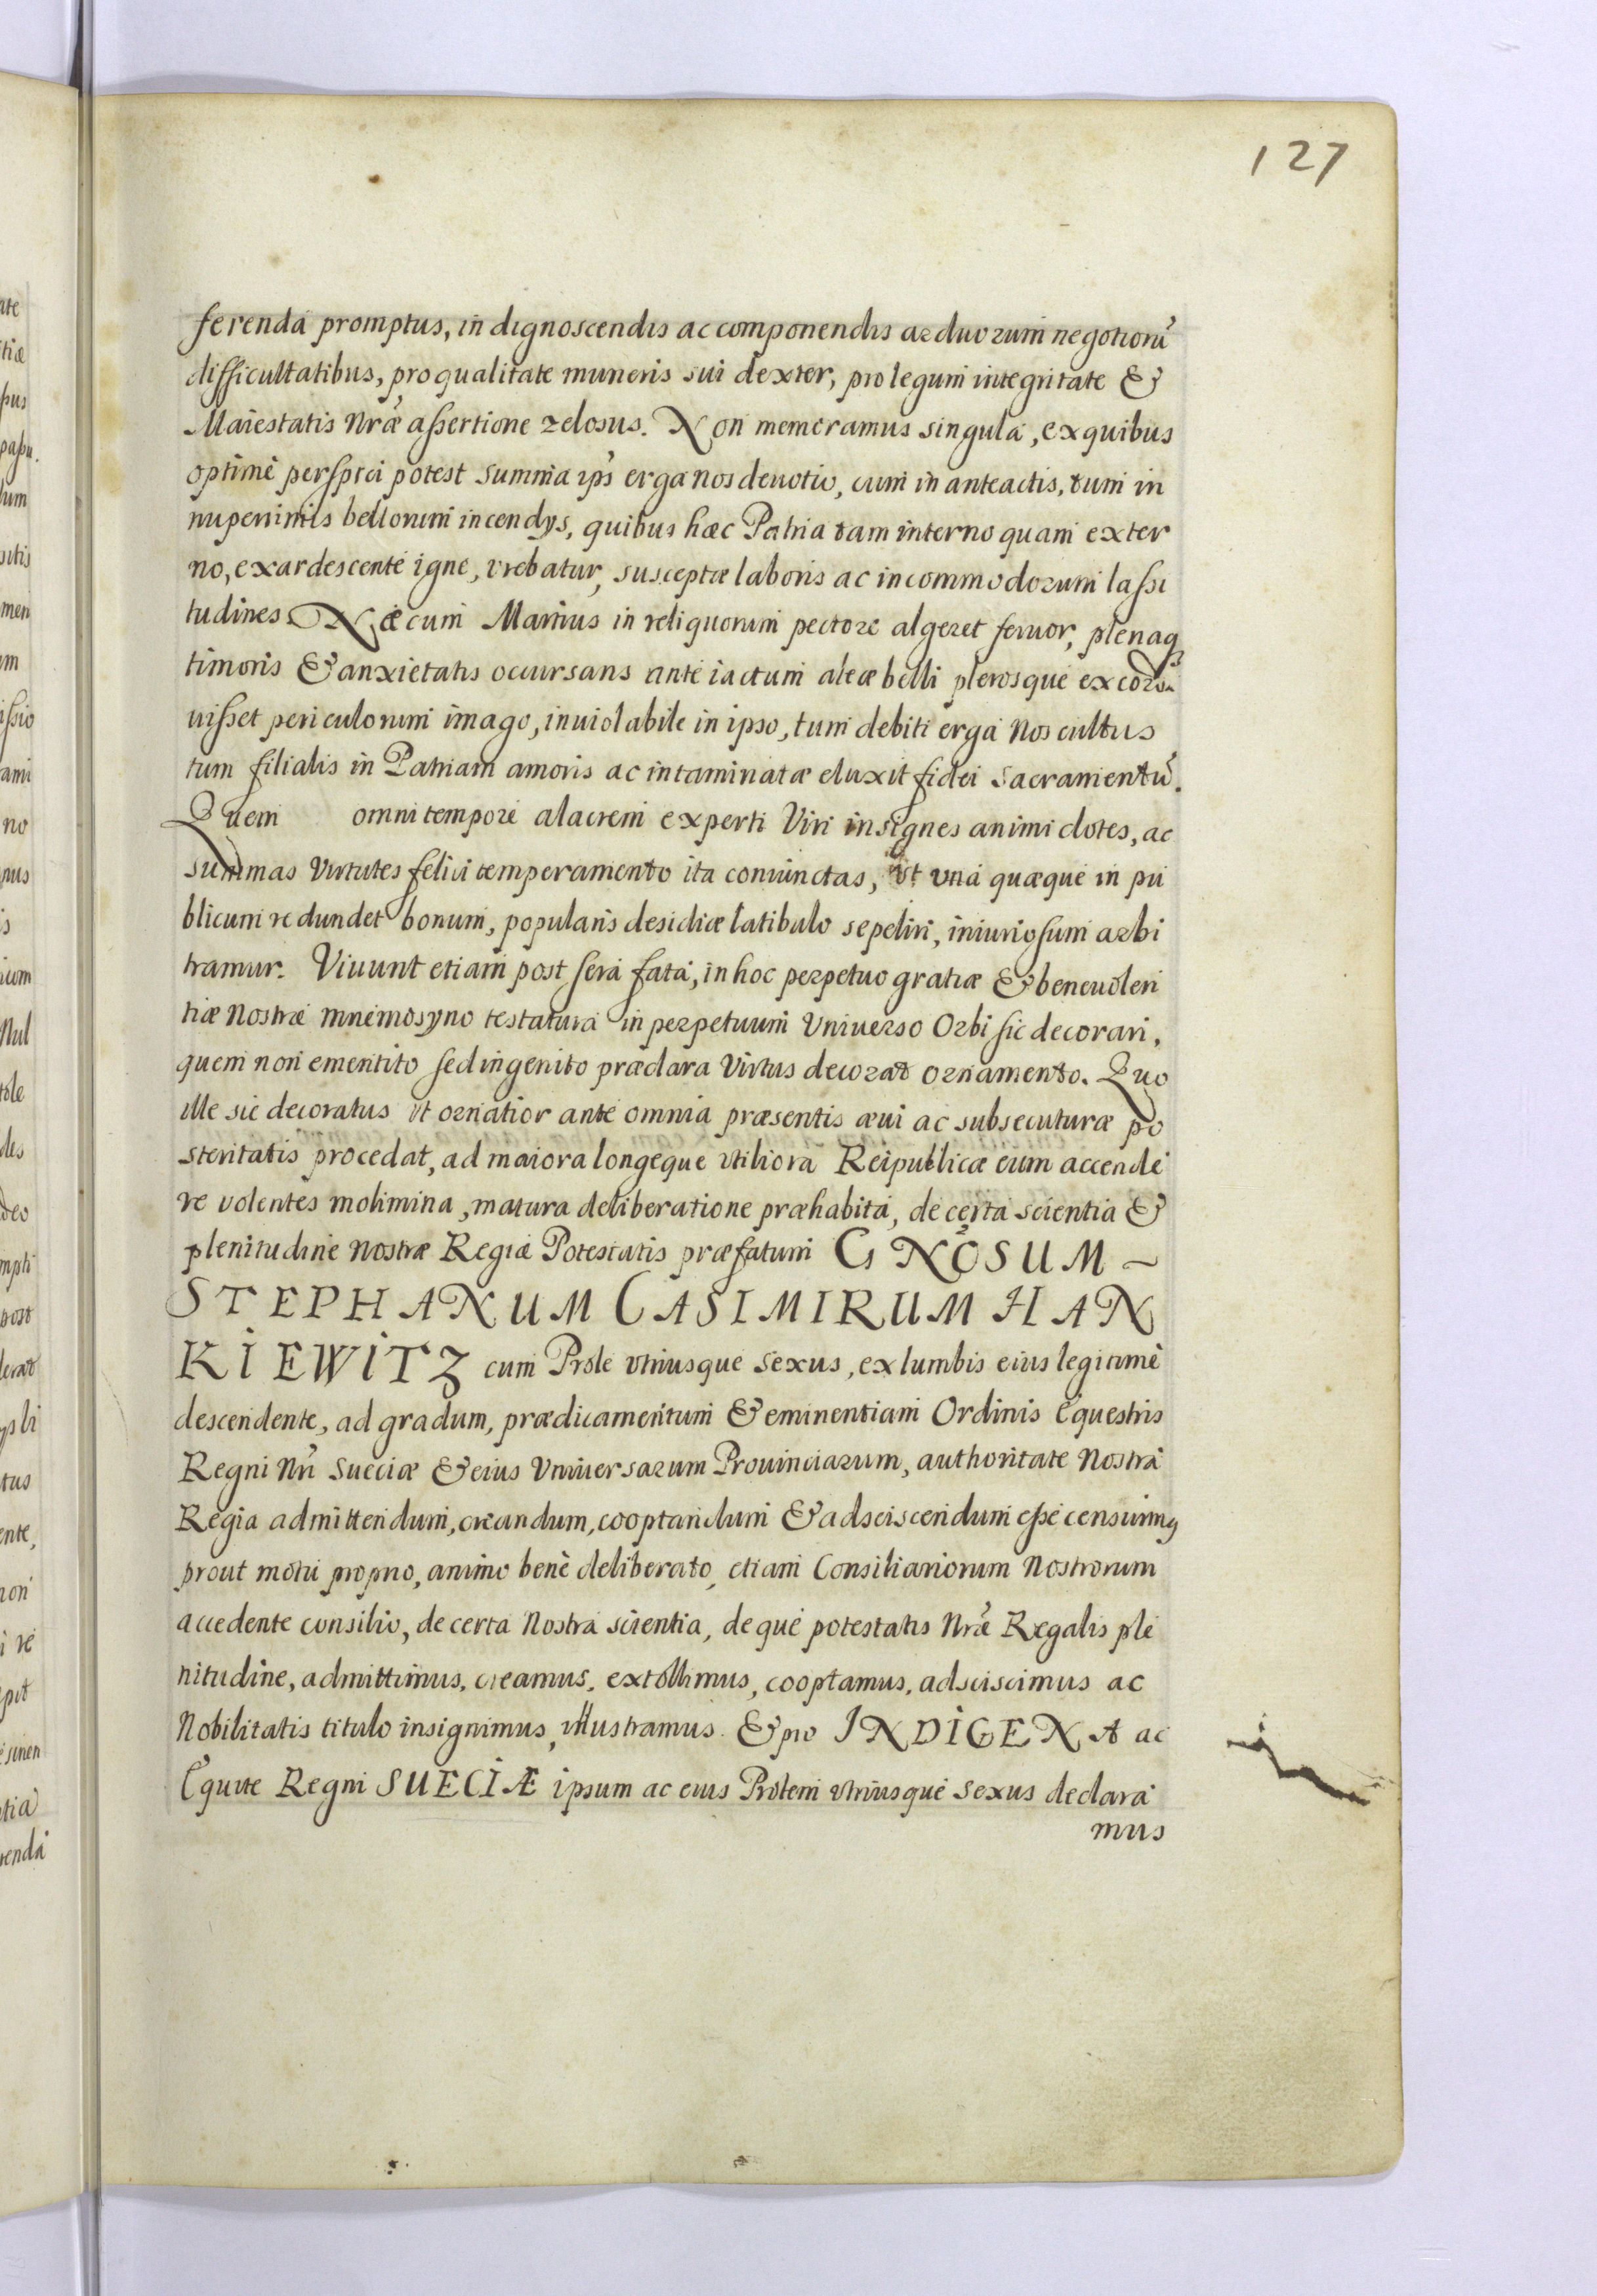 127
ferenda promptus, in dignoscendis ac componendis arduorum negotiorũ
difficultatibus, pro qualitate muneris sui dexter, pro legum integritate &
Maiestatis Nr̃æ assertione zelosus. Non memoramus singula, ex quibus
optimè perspici potest summa ips̃ erga nos deuotio, cum in anteactis, tum in
nuperrimis bellorum incendys, quibus hæc Patria tam interno quam exter
no, exardescente igne, vrebatur, susceptæ laboris ac incommodorum lassi
tudines Næ cum Martius in reliquorum pectore algeret feruor, plenaq̃
timoris & anxietatis occursans ante iactum aleæ belli plerosque excorda
uisset periculorum imago, inuiolabile in ipso, tum debiti erga Nos cultus
tum filialis in Patriam amoris ac intaminatæ eluxit fidei sacramentũ.
Quem omni tempore alacrem experti Viri insignes animi dotes, ac
summas Virtutes felici temperamento ita coniunctas, vt vna quæque in pu
blicum redundet bonum, popularis desidiæ latibulo sepeliri, iniuriosum arbi
tramur. Viuunt etiam post sera fata, in hoc perpetuo gratiæ & beneuolen
tiæ Nostræ mnemosyno testatura in perpetuum Vniuerso Orbi sic decorari,
quem non ementito sed ingenito præclara Virtus decorat ornamento. Quo
ille sic decoratus vt ornatior ante omnia præsentis æui ac subsecuturæ po
steritatis procedat, ad maiora longeque vtiliora Reipublicæ eum accende
re volentes molimina, matura deliberatione præhabita, de certa scientia &
plenitudine Nostræ Regiæ Potestatis præfatum GNÕSUM
STEPHANUM CASIMIRUM HAN
KIEWITZ cum Prole vtriusque sexus, ex lumbis eius legitimè
descendente, ad gradum, prædicamentum & eminentiam Ordinis Equestris
Regni Nr̃i Sueciæ & eius Vniuersarum Prouinciarum, authoritate Nostra
Regia admittendum, creandum, cooptandum & adsciscendum esse censuimꝰ
prout motu proprio, animo benè deliberato, etiam Consiliariorum Nostrorum
accedente consilio, de certa Nostra scientia, de que potestatis Nr̃æ Regalis ple
nitudine, admittimus, creamus, extollimus, cooptamus, adsciscimus ac
Nobilitatis titulo insignimus, illustramus. & pro INDIGENA ac
Equite Regni SUECIÆ ipsum ac eius Prolem vtriusque sexus declara
mus